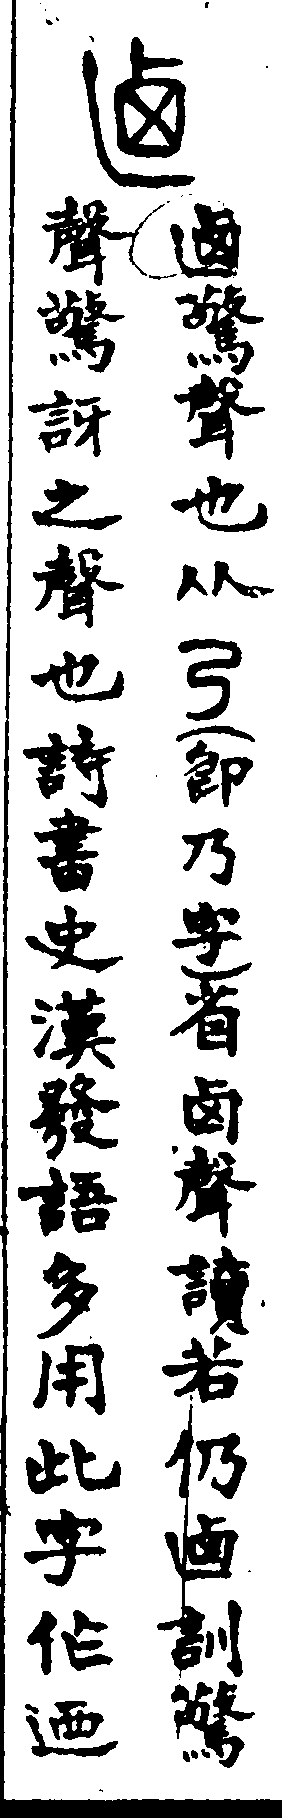 𠧟
𠧟驚聲也从𠄎(卽乃字)省卥聲讀若仍𠧟訓驚
聲驚訝之聲也詩書史漢發語多用此字作迺